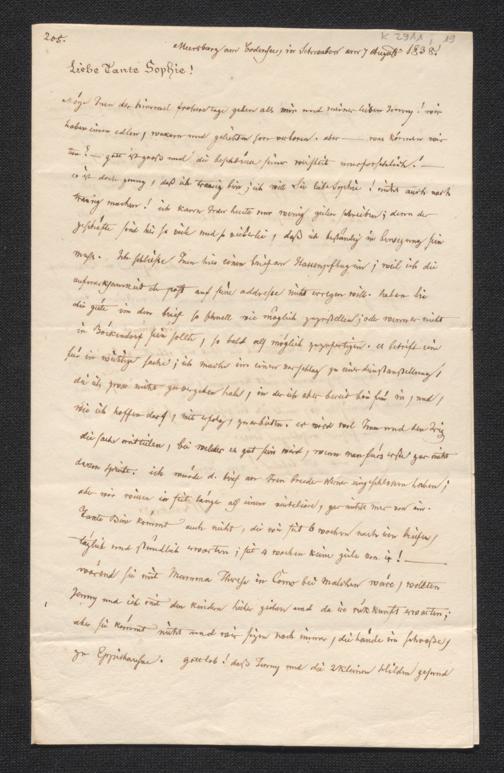 205.
K 2911, 19
Meersburg am Bodensee, im Schwaben am 7 August 1838!
Liebe Tante Sophie!
Möge Inen der himmel frohere tage geben als mir und meiner lieben Jenny! wir
haben einen edlen, wakern und geliebten verloren. aber — was können wir
tun? — gott ist groß und die beschlüsse seiner weisheit unerforschlich! —
es ist doch genug, daß ich traurig bin; ich will Sie liebe Sophie! nicht auch noch
traurig machen! ich kann Inen heute nur wenig zeilen schreiben; denn der
geschäfte sind hie so viel und so vielerlei, daß ich beständig in bewegung sein
muß. Ich schließe Inen hier einen brief an Hassenpflug ein; weil ich die
aufmerksamkeit der post auf seine addresse nicht erregen will. haben Sie
die güte im den brief so schnell wie möglich zuzustellen; oder wenn er nicht
in Bökendorf sein sollte, so bald als möglich zuzufertigen. er betrift eine
für in wichtige sache; ich mache im einen vorschlag zu einer dinstanstellung,
die ich zwar nicht zu vergeben habe, in der ich aber bereit bin für in, und,
wie ich hoffen darf, mit erfolg, zu arbeiten. er wird wol Inen und den Irig
die sache mitteilen, bei welcher es gut sein wird, wenn man fürs erste gar nicht
davon spricht. ich würde d. brief an Iren bruder Werner eingeschlossen haben;
aber wir wissen in seit lange als einen, gar nichts mer von im.
Tante Nine kommt auch nicht, die wir seit 6 wochen nach iren briefen,
täglich und stündlich erwarten; seit 4 wochen keine zeile von ir! —
wärend sie mit Mamma Therese in Como bei Malchen wäre, wollten
Jenny und ich mit den kindern hieher ziehen und da ire rükkunft erwarten;
aber sie kömmt nicht und wir sizen noch immer, die hände im schooße,
zu Eppishausen. gottlob! daß Jenny und die 2 kleinen Hilden gesund